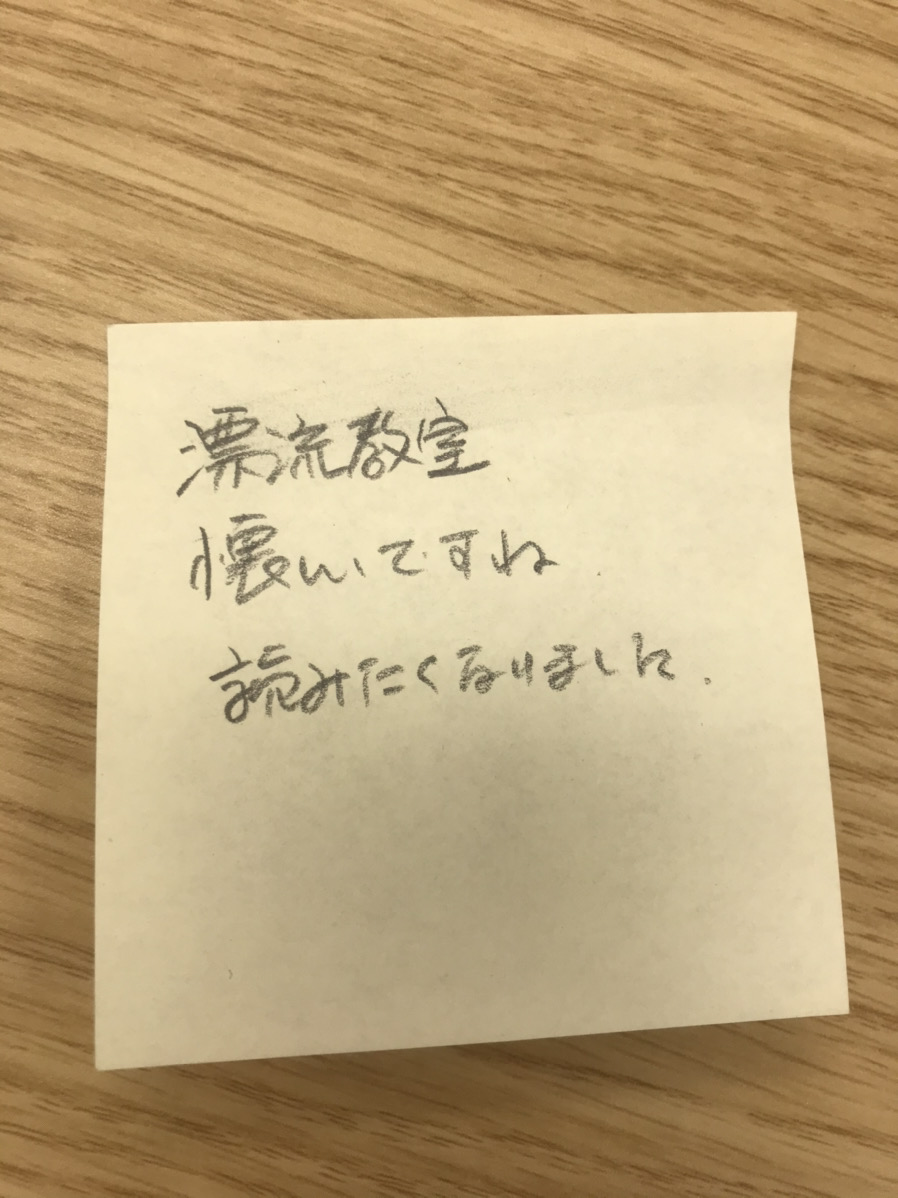 漂流教室
懐いですね
読みたくなりました.